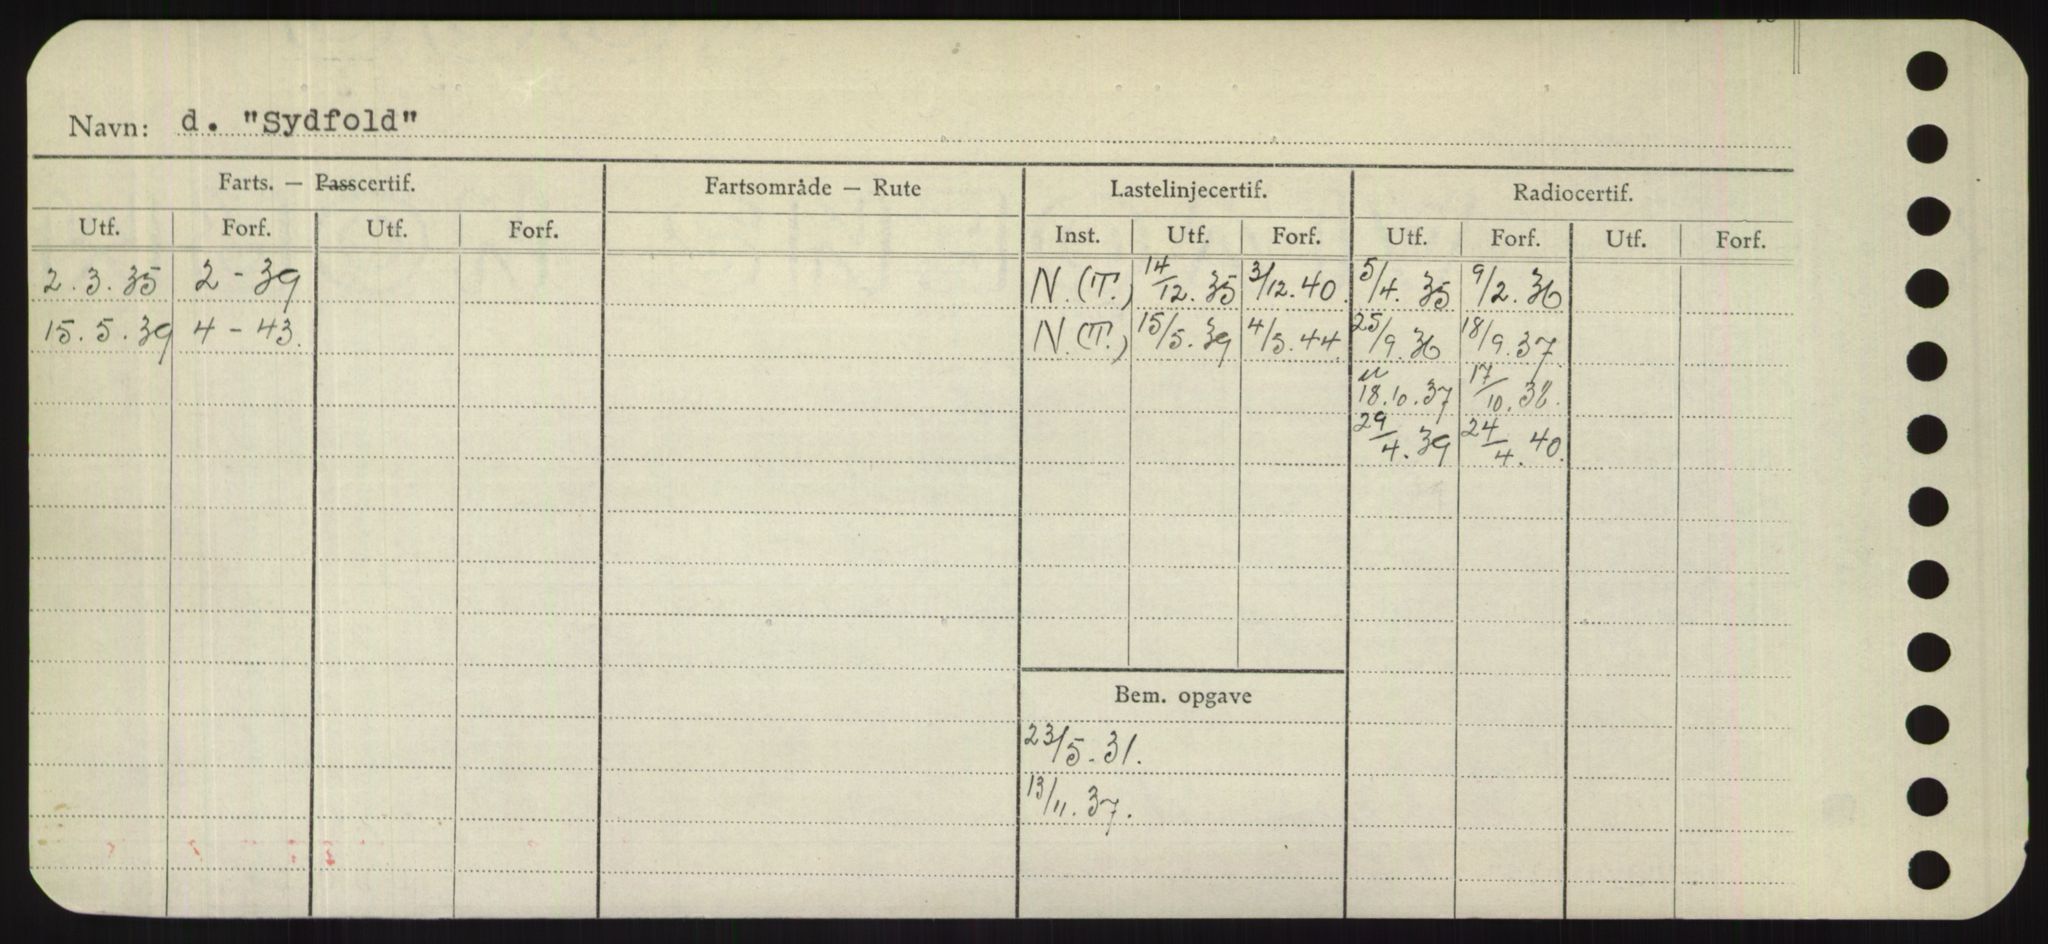 Navn: d. "Sydfold"
Farts. — Passcertif. Fartsområde — Rute Lastelinjecertif. Radiocertif.
Utf. Forf. Utf. Forf. Inst. Utf. Forf. Utf. Forf. Utf. Forf.
2.3.35 2-39 N.(T.) 14/12.35 3/12.40. 5/4.35 9/2.36
15.5.39 4-43. N.(T.) 15/5.39 4/5.44 25/9.36 18/9.37
18.10.37 17/10.38.
29/4.39 24/4.40.
Bem. opgave
23/5.31.
13/11.37.